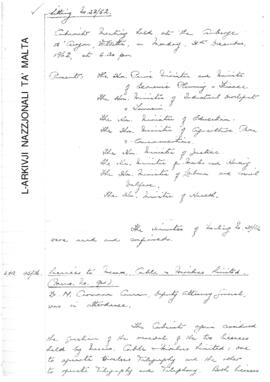 L-ARKIVJI NAZZJONALI TA' MALTA
Sitting No. 28/62.
Cabinet Meeting held at the Auberge
d'Aragon, Valletta, on Monday, December,
1962, at 6.30 pm
Present: The Hon. Prime Minister and Minister
of Economic Planning & Finance
The Hon. Minister of Industrial Development
& Tourism
The Hon. Minister of Education
The Hon. Minister of Agriculture, Power
& Communications
The Hon. Minister of Justice
The Hon. Minister for Works and Housing
The Hon. Minister of Labour and Social
Welfare.
The Hon. Minister of Health.
The Minutes of Sitting No.
were read and confirmed.
Licences to Messrs. Cable & Wireless Limited
Dr. M. Caruana Curran, Deputy Attorney General,
was in attendance.
The Cabinet again considered
the question of the renewal of the two licences
held by Messrs. Cable & Wireless Limited, one
to operate Wireless Telegraphy and the other
to operate Telegraphy and Telephony. Both licences